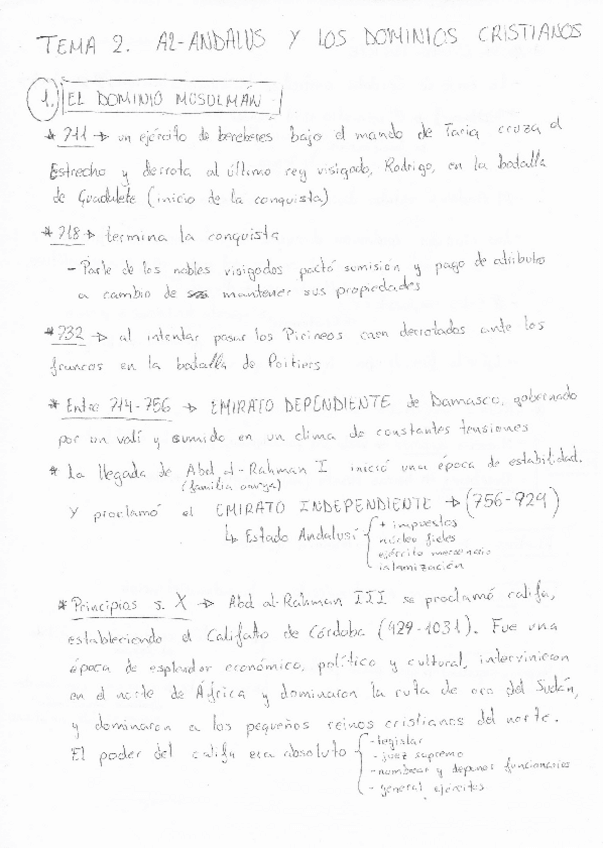 TEMA 2. AL-ANDALUS Y LOS DOMINIOS CRISTIANOS
1. EL DOMINIO MUSULMÁN
* 711 → un ejército de bereberes bajo el mando de Tariq cruza el
Estrecho y derrota al último rey visigodo, Rodrigo, en la batalla
de Guadalete (inicio de la conquista)
* 718 → termina la conquista
- Parte de los nobles visigodos pactó sumisión y pago de atributo
a cambio de mantener sus propiedades
* 732 → al intentar pasar los Pirineos caen derrotados ante los
francos en la batalla de Poitiers
* Entre 714-756 → EMIRATO DEPENDIENTE de Damasco, gobernado
por un valí y sumido en un clima de constantes tensiones
* La llegada de Abd al-Rahman I inició una época de estabilidad.
(familia omeya)
Y proclamó el EMIRATO INDEPENDIENTE → (756-929)
↳ Estado Andalusí
+ impuestos
núcleo fieles
ejército mercenario
islamización
* Principios s. X → Abd al-Rahman III se proclamó califa,
estableciendo el Califato de Córdoba (929-1031). Fue una
época de esplendor económico, político y cultural, intervinieron
en el norte de África y dominaron la ruta de oro del Sudán,
y dominaron a los pequeños reinos cristianos del norte.
El poder del califa era absoluto
- legislar
- juez supremo
- nombrar y deponer funcionarios
- general ejércitos